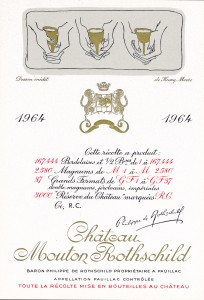 Dessin inédit de Henry Moore
1964 1964
Cette récolte a produit:
167.444 Bordelaises et ½ Btes de 1 à 167.444
2.580 Magnums de M 1 à M 2.580
37 Grands Formats de G F 1 à G F 37
double magnums, jéroboams, impériales
3000 "Réserve du Château" marquées R.C.
Ci, R.C.
Philippe de Rothschild
Château
Mouton Rothschild
BARON PHILIPPE DE ROTHSCHILD PROPRIÉTAIRE A PAUILLAC
APPELLATION PAUILLAC CONTRÔLÉE
TOUTE LA RÉCOLTE MISE EN BOUTEILLES AU CHÂTEAU